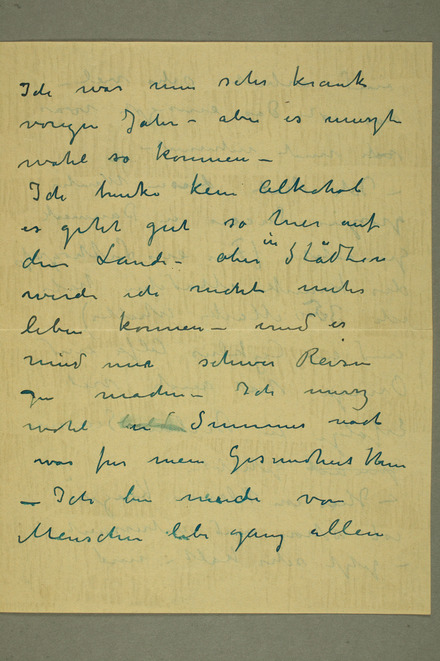 Ich war nun sehr krank
voriges Jahr – aber es muszte
wohl so kommen –
Ich trinke kein Alkohol
es geht gut so hier auf
dem Lande – aber in Städten
werde ich nicht mehr
leben können – und es
wird mir schwer Reisen
zu machen – Ich musz
wohl Summer noch
was für mein Gesundheit thun
– Ich bin müde von
Menschen lebe ganz allein